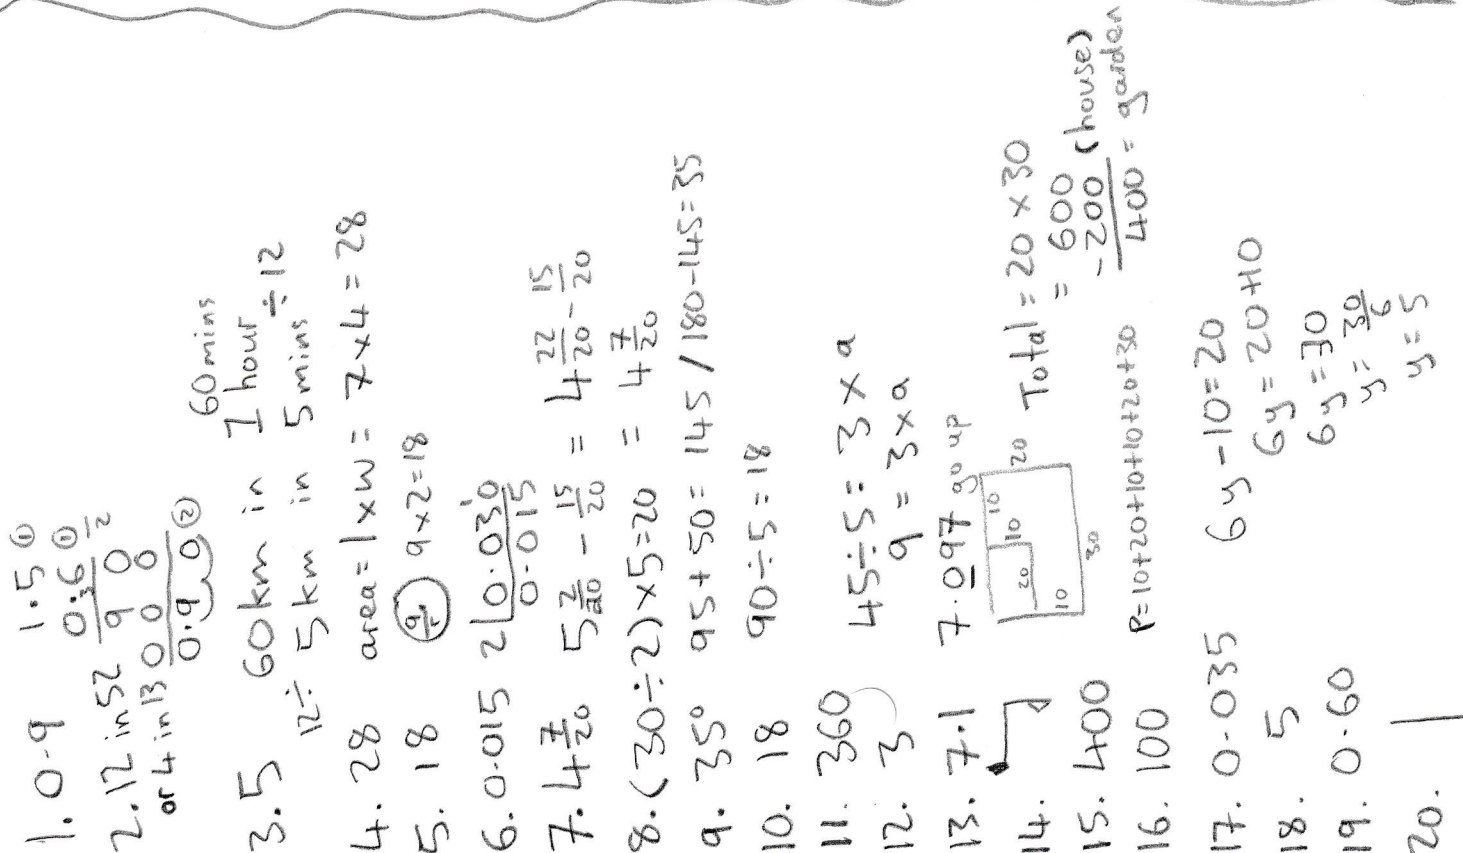 1. 0.9 1.5 ①
0.6 ①
9 0
0 0 0
0.9 0 ②
2. 12 in 52
or 4 in 13
3. 5 60km in 1 hour 60mins
12÷ 5km in 5 mins ÷12
4. 28 area = l x w = 7 x 4 = 28
5. 18 9 x 2 = 18
6. 0.015 2 0.030
0.015
7. 4 7/20 5 2/20 - 15/20 = 4 22/20 - 15/20
= 4 7/20
8. (30÷2) x 5 = 20
9. 35° 95 + 50 = 145 / 180-145 = 35
10. 18 90 ÷ 5 = 18
11. 360
12. 3 45 ÷ 5 = 3 x a
9 = 3 x a
13. 7.1 7.097 go up
14.
10
10
20
20
10
30
15. 400 Total = 20 x 30
= 600
- 200 (house)
400 = garden
16. 100 P=10+20+10+10+20+30
17. 0.035
18. 5 6y - 10 = 20
6y = 20+10
6y = 30
y = 30/6
y = 5
19. 0.60
20.